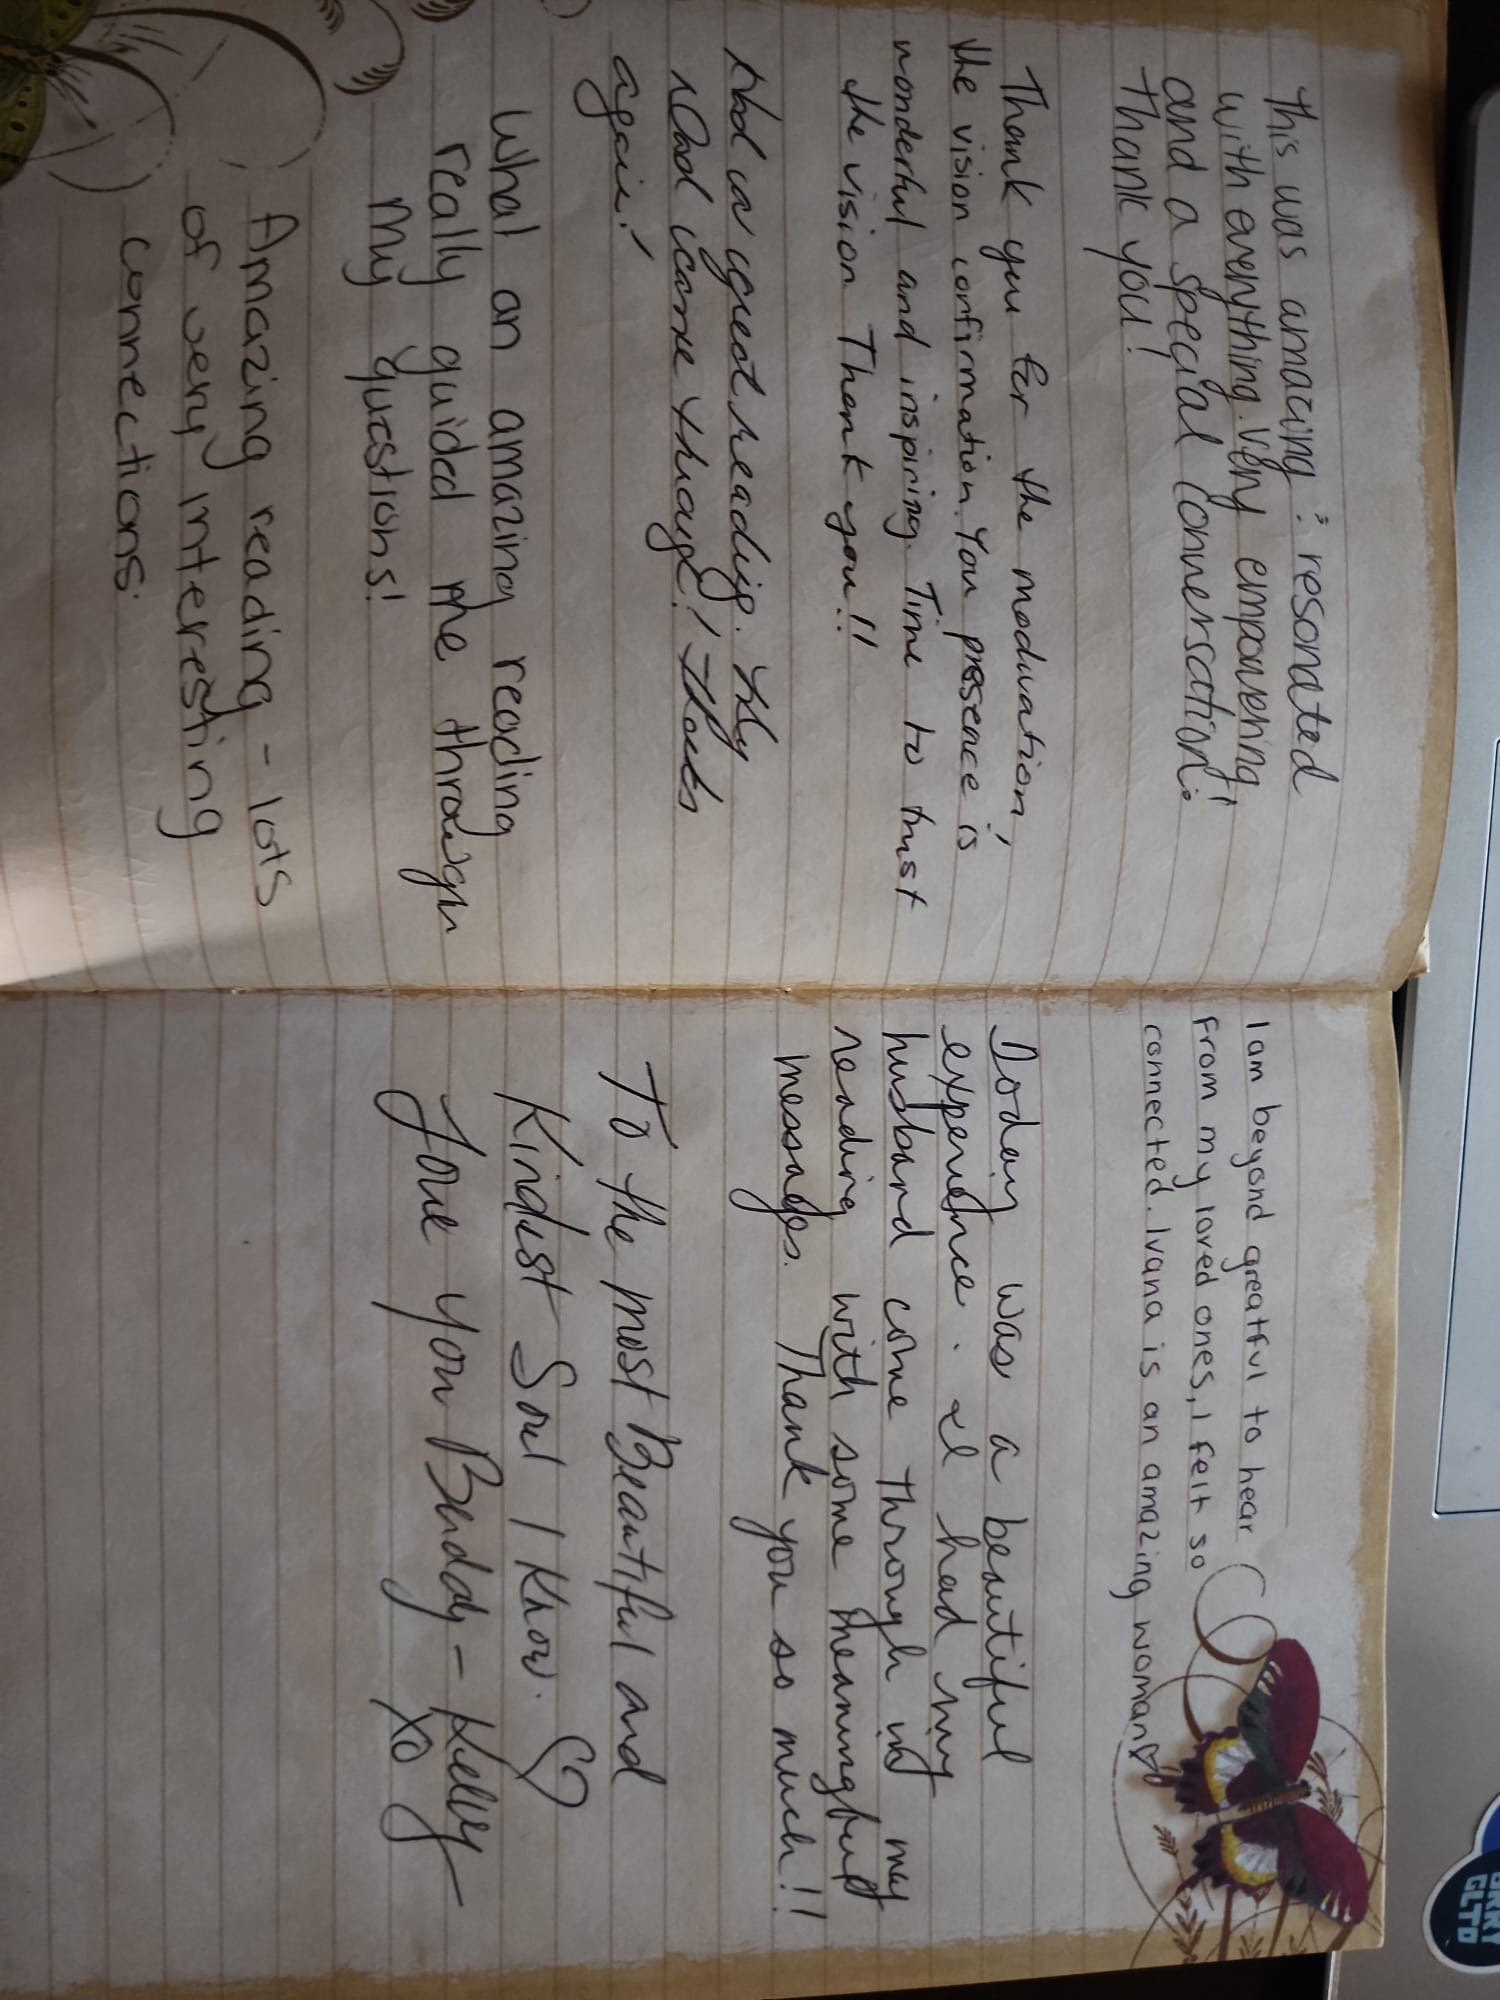 This was amazing : resonated
with everything. Very empowering
and a special conversation!
Thank you!
Thank you for the motivation,
the vision confirmation. You presence is
wonderful and inspiring. Time to trust
the vision Thank you!!
Had a great reading. My
Dad came through!
again!
What an amazing reading
really guided me through
my questions!
Amazing reading - lots
of very interesting
connections.
I am beyond greatful to hear
from my loved ones, I felt so
connected. Ivana is an amazing woman♡
Today was a beautiful
experience. I had my
husband come through in my
reading with some meaningful
messages. Thank you so much!!
To the most Beautiful and
Kindest Soul I know. ♡
Love you Buddy - Kelly
xo
GLTD